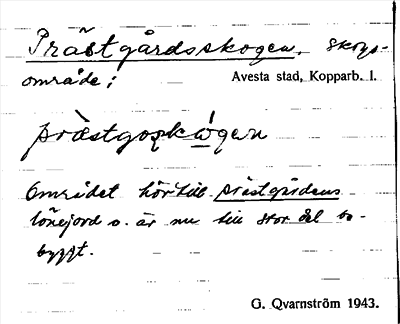 Prästgårdsskogen, skogs-
område;
Avesta stad, Kopparb. l.
prästgoskógen
Området hör till prästgårdens
lönejord o. är nu till stor del be-
byggt.
G. Qvarnström 1943.